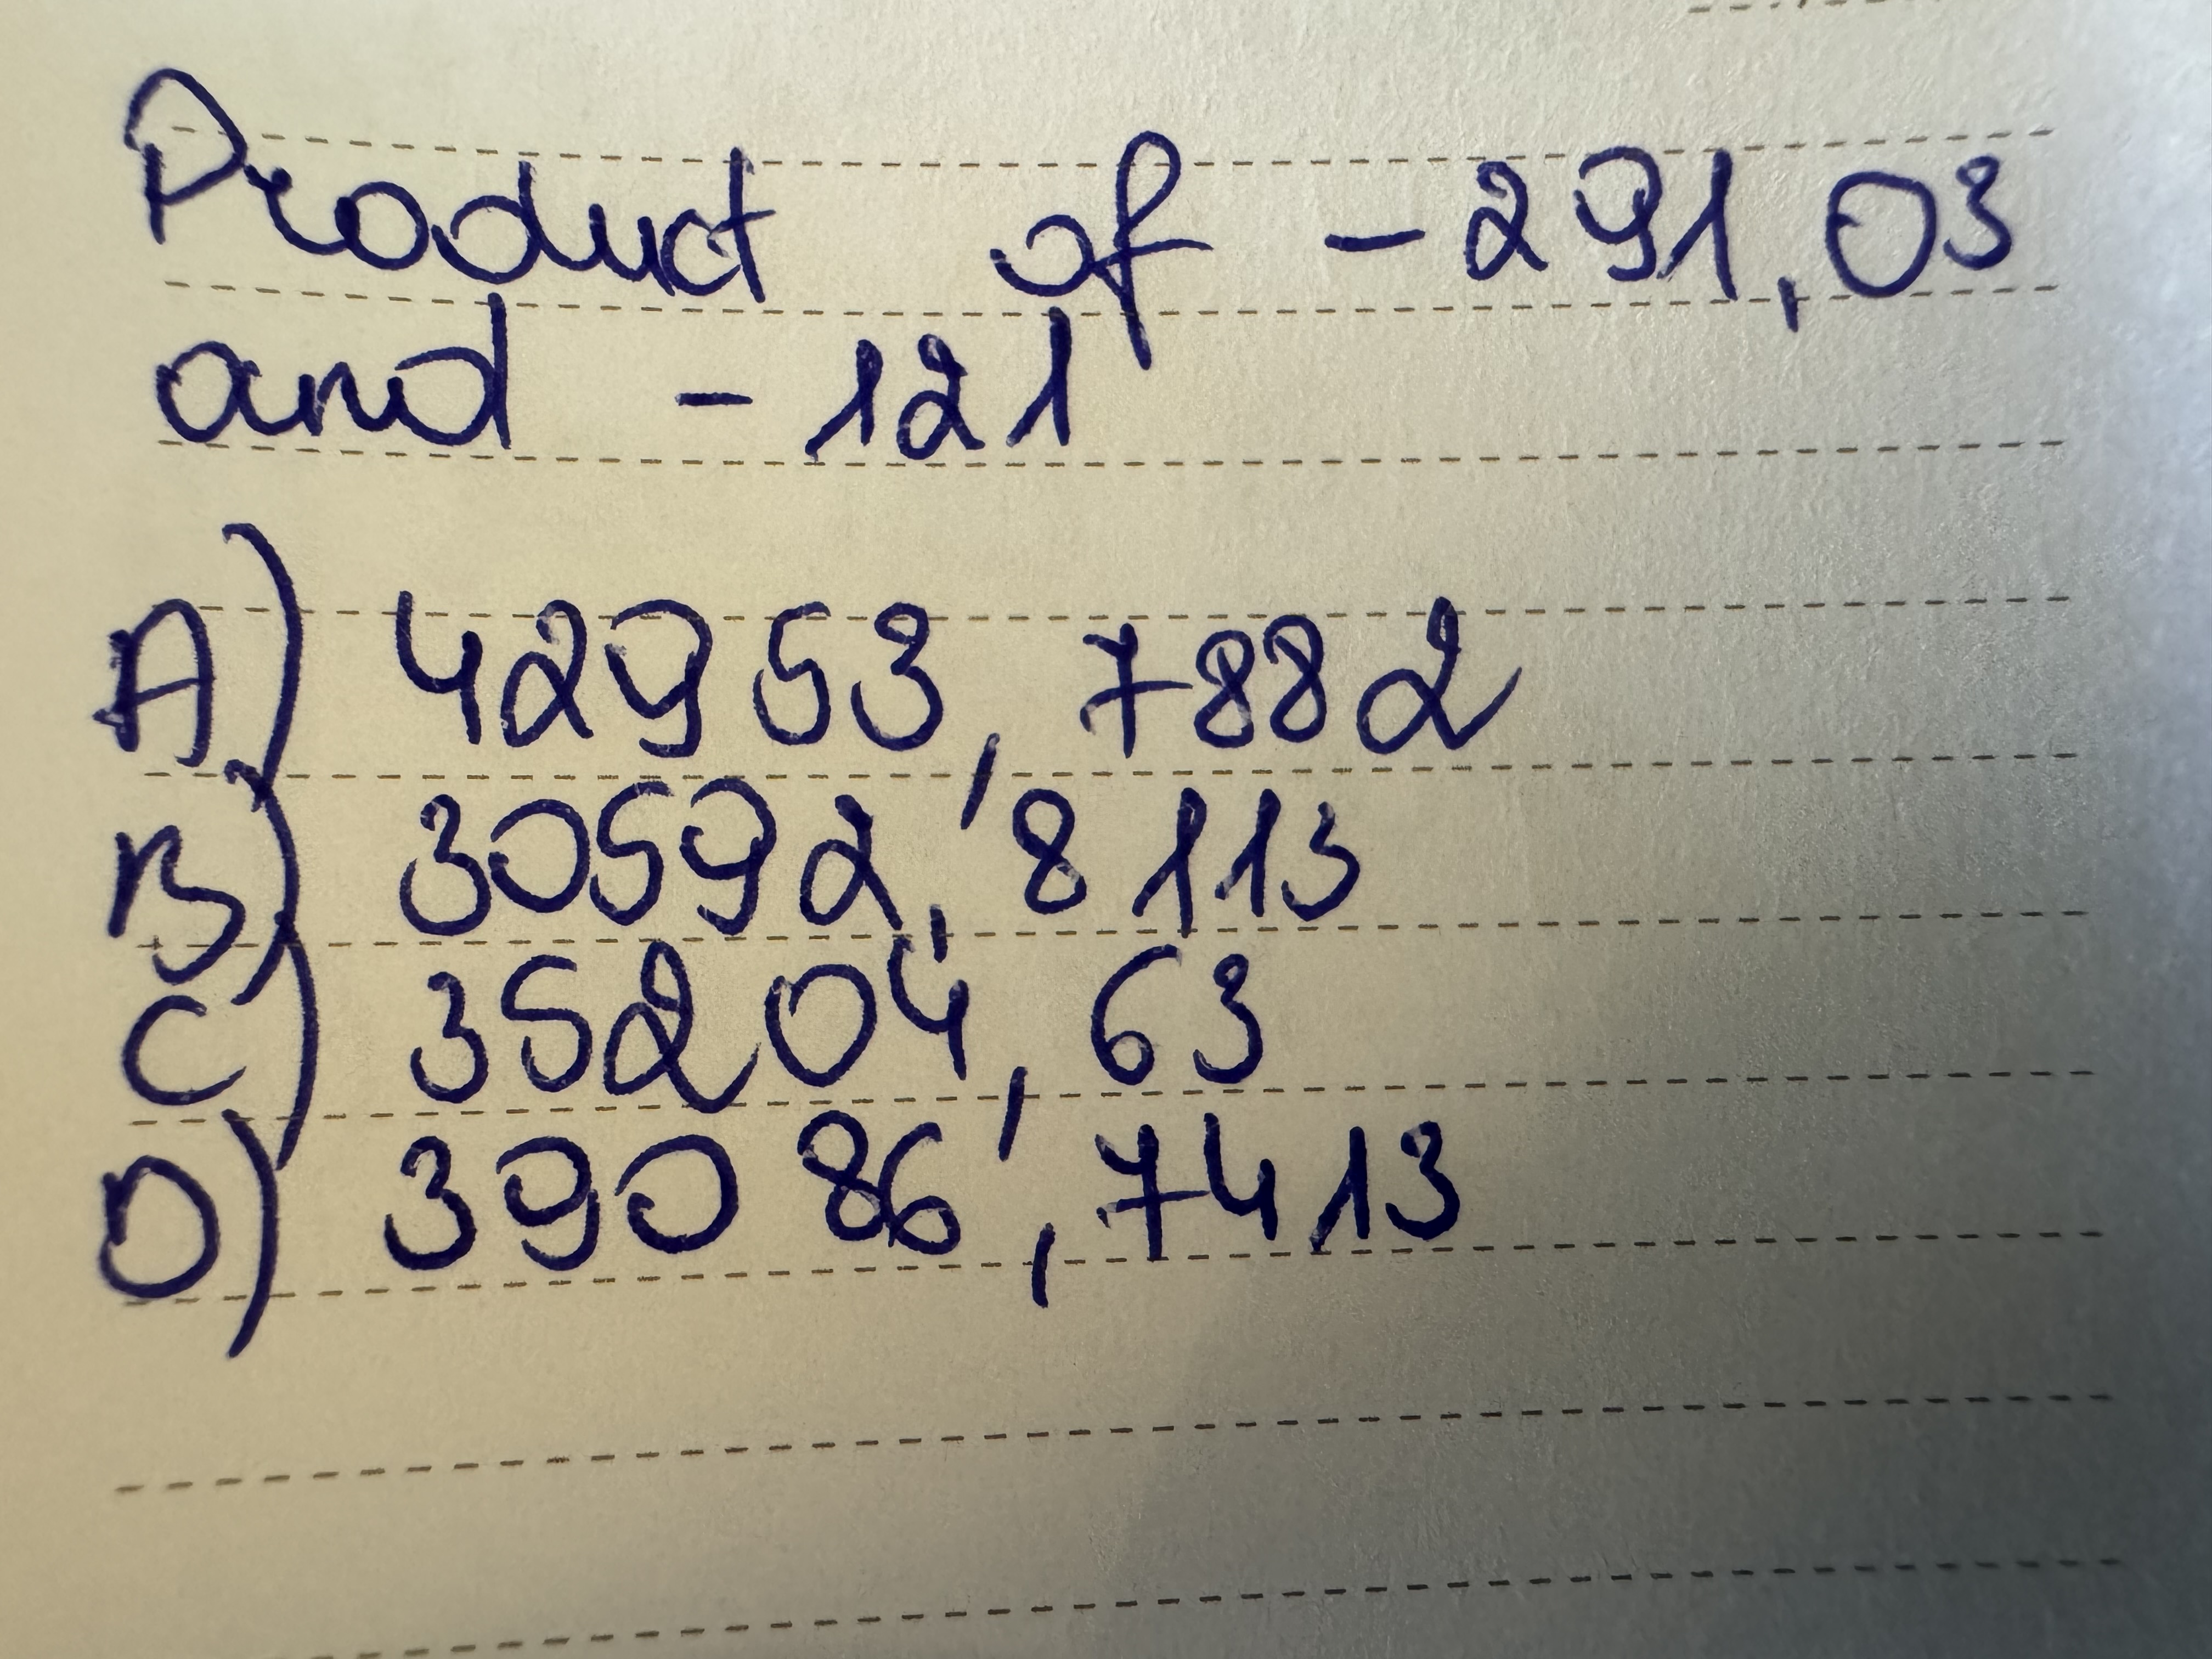 Product of -291,03
and -121
A) 42953,7882
B) 30592,8113
C) 35204,63
D) 39086,7413